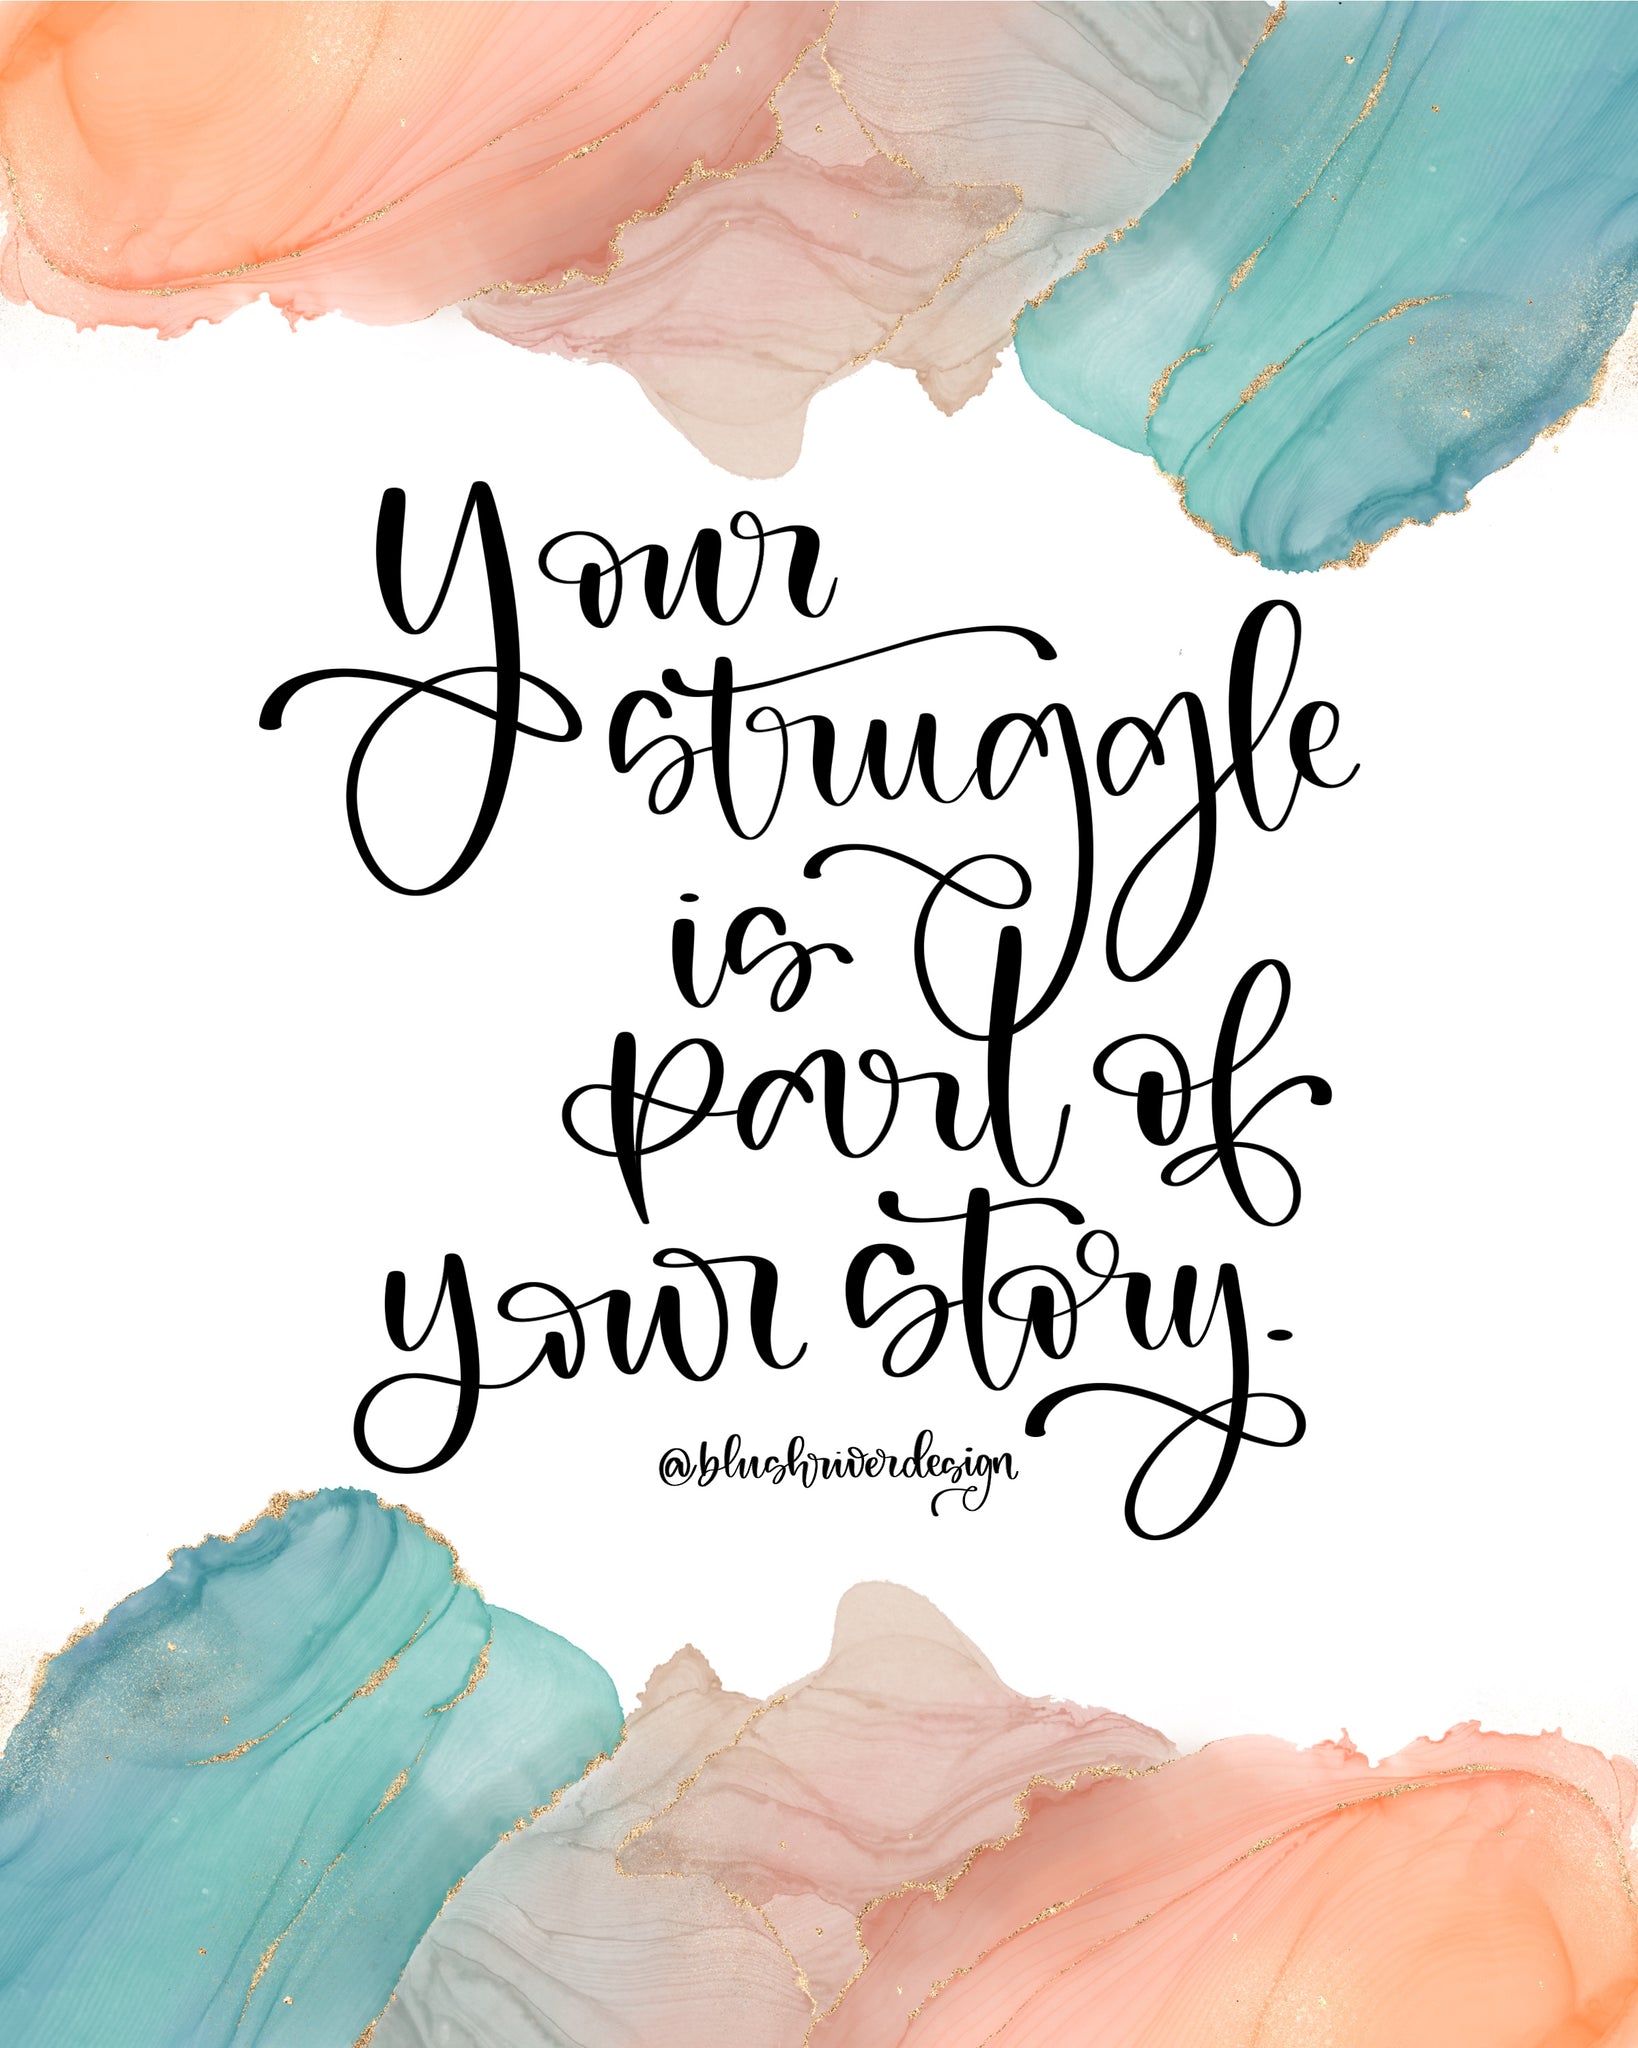 Your
struggle
is
part of
your story.
@blushriverdesign